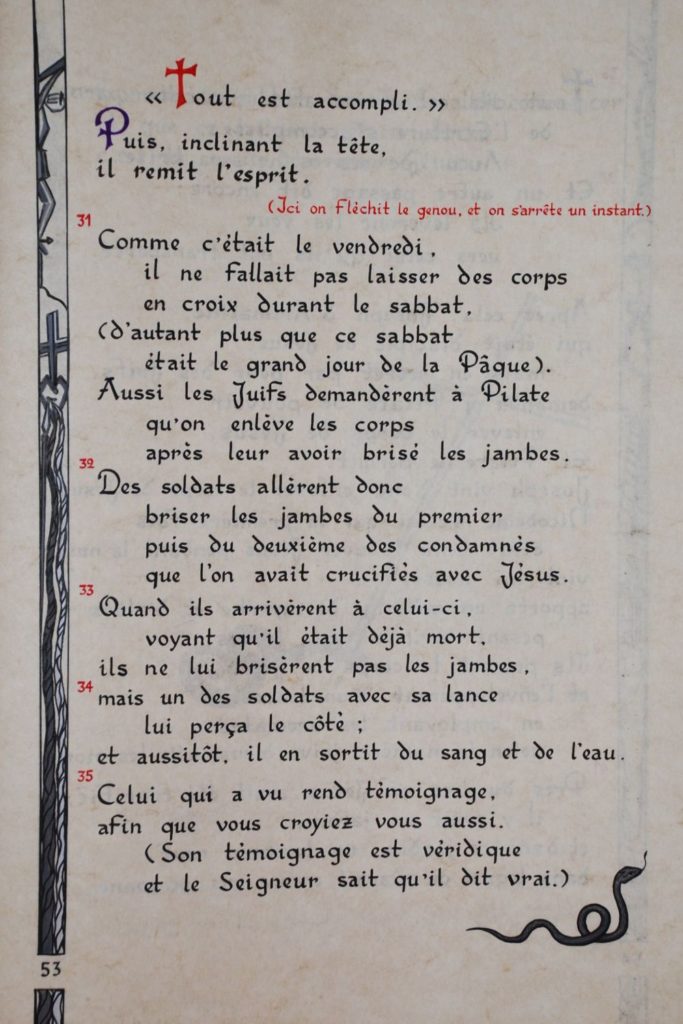 « Tout est accompli. »
Puis, inclinant la tête,
il remit l'esprit.
(Ici on fléchit le genou, et on s'arrête un instant.)
31
Comme c'était le vendredi,
il ne fallait pas laisser des corps
en croix durant le sabbat,
(d'autant plus que ce sabbat
était le grand jour de la Pâque).
Aussi les Juifs demandèrent à Pilate
qu'on enlève les corps
après leur avoir brisé les jambes.
32
Des soldats allèrent donc
briser les jambes du premier
puis du deuxième des condamnés
que l'on avait crucifiés avec Jésus.
33
Quand ils arrivèrent à celui-ci,
voyant qu'il était déjà mort,
ils ne lui brisèrent pas les jambes,
34 mais un des soldats avec sa lance
lui perça le côté ;
et aussitôt, il en sortit du sang et de l'eau.
35
Celui qui a vu rend témoignage,
afin que vous croyiez vous aussi.
(Son témoignage est véridique
et le Seigneur sait qu'il dit vrai.)
53